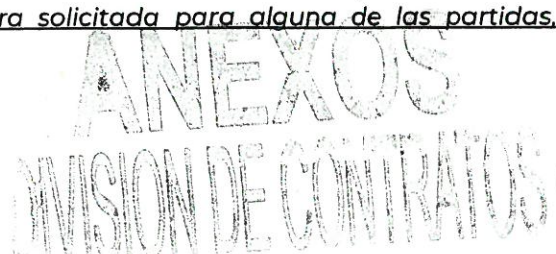 ra solicitada para alguna de las partidas.
ANEXOS
DIVISION DE CONTRATOS